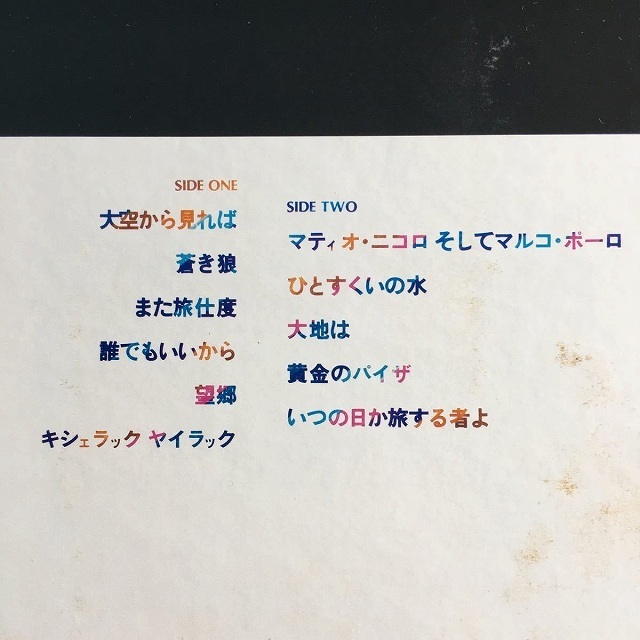 SIDE ONE
大空から見れば
蒼き狼
また旅仕度
誰でもいいから
望郷
キシェラック ヤイラック
SIDE TWO
マティオ・ニコロ そしてマルコ・ポーロ
ひとすくいの水
大地は
黄金のパイザ
いつの日か旅する者よ